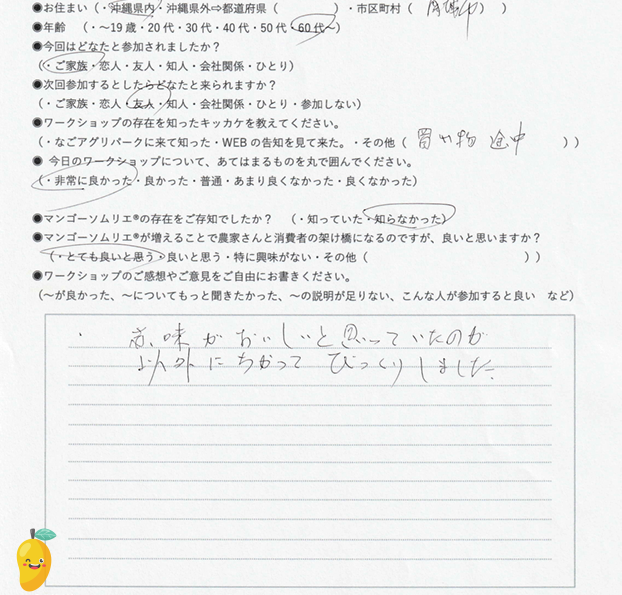 ●お住まい（・沖縄県内・沖縄県外⇒都道府県（　　　　　）・市区町村（　　　）　）
●年齢　（・～19歳・20代・30代・40代・50代・60代～）
●今回はどなたと参加されましたか？
（・ご家族・恋人・友人・知人・会社関係・ひとり）
●次回参加するとしたらどなたと来られますか？
（・ご家族・恋人・友人・知人・会社関係・ひとり・参加しない）
●ワークショップの存在を知ったキッカケを教えてください。
（・なごアグリパークに来て知った・WEBの告知を見て来た。・その他（ 買い物 途中　　））
● 今日のワークショップについて、あてはまるものを丸で囲んでください。
（・非常に良かった・良かった・普通・あまり良くなかった・良くなかった）
●マンゴーソムリエ®の存在をご存知でしたか？　（・知っていた・知らなかった）
●マンゴーソムリエ®が増えることで農家さんと消費者の架け橋になるのですが、良いと思いますか？
（・とても良いと思う・良いと思う・特に興味がない・その他（　　　　　　　　　　））
●ワークショップのご感想やご意見をご自由にお書きください。
（～が良かった、～についてもっと聞きたかった、～の説明が足りない、こんな人が参加すると良い　など）
・ 赤、味がおいしいと思っていたのが
以外にちがって びっくりしました。